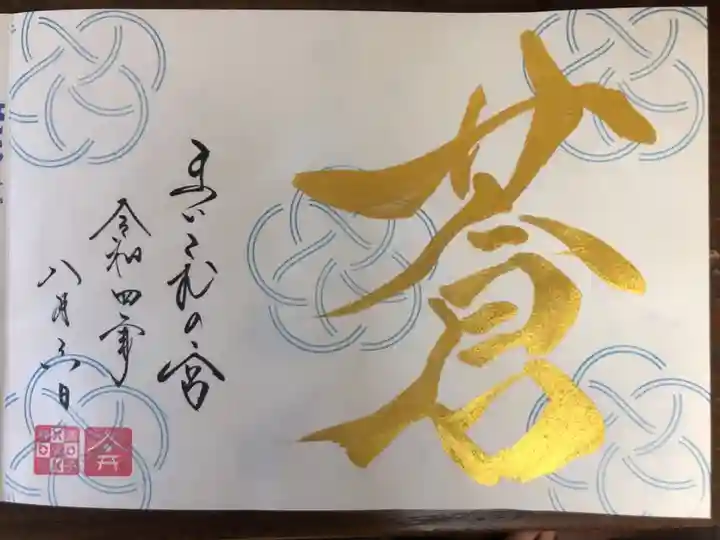 蒼
まいころの宮
令和四年
八月六日